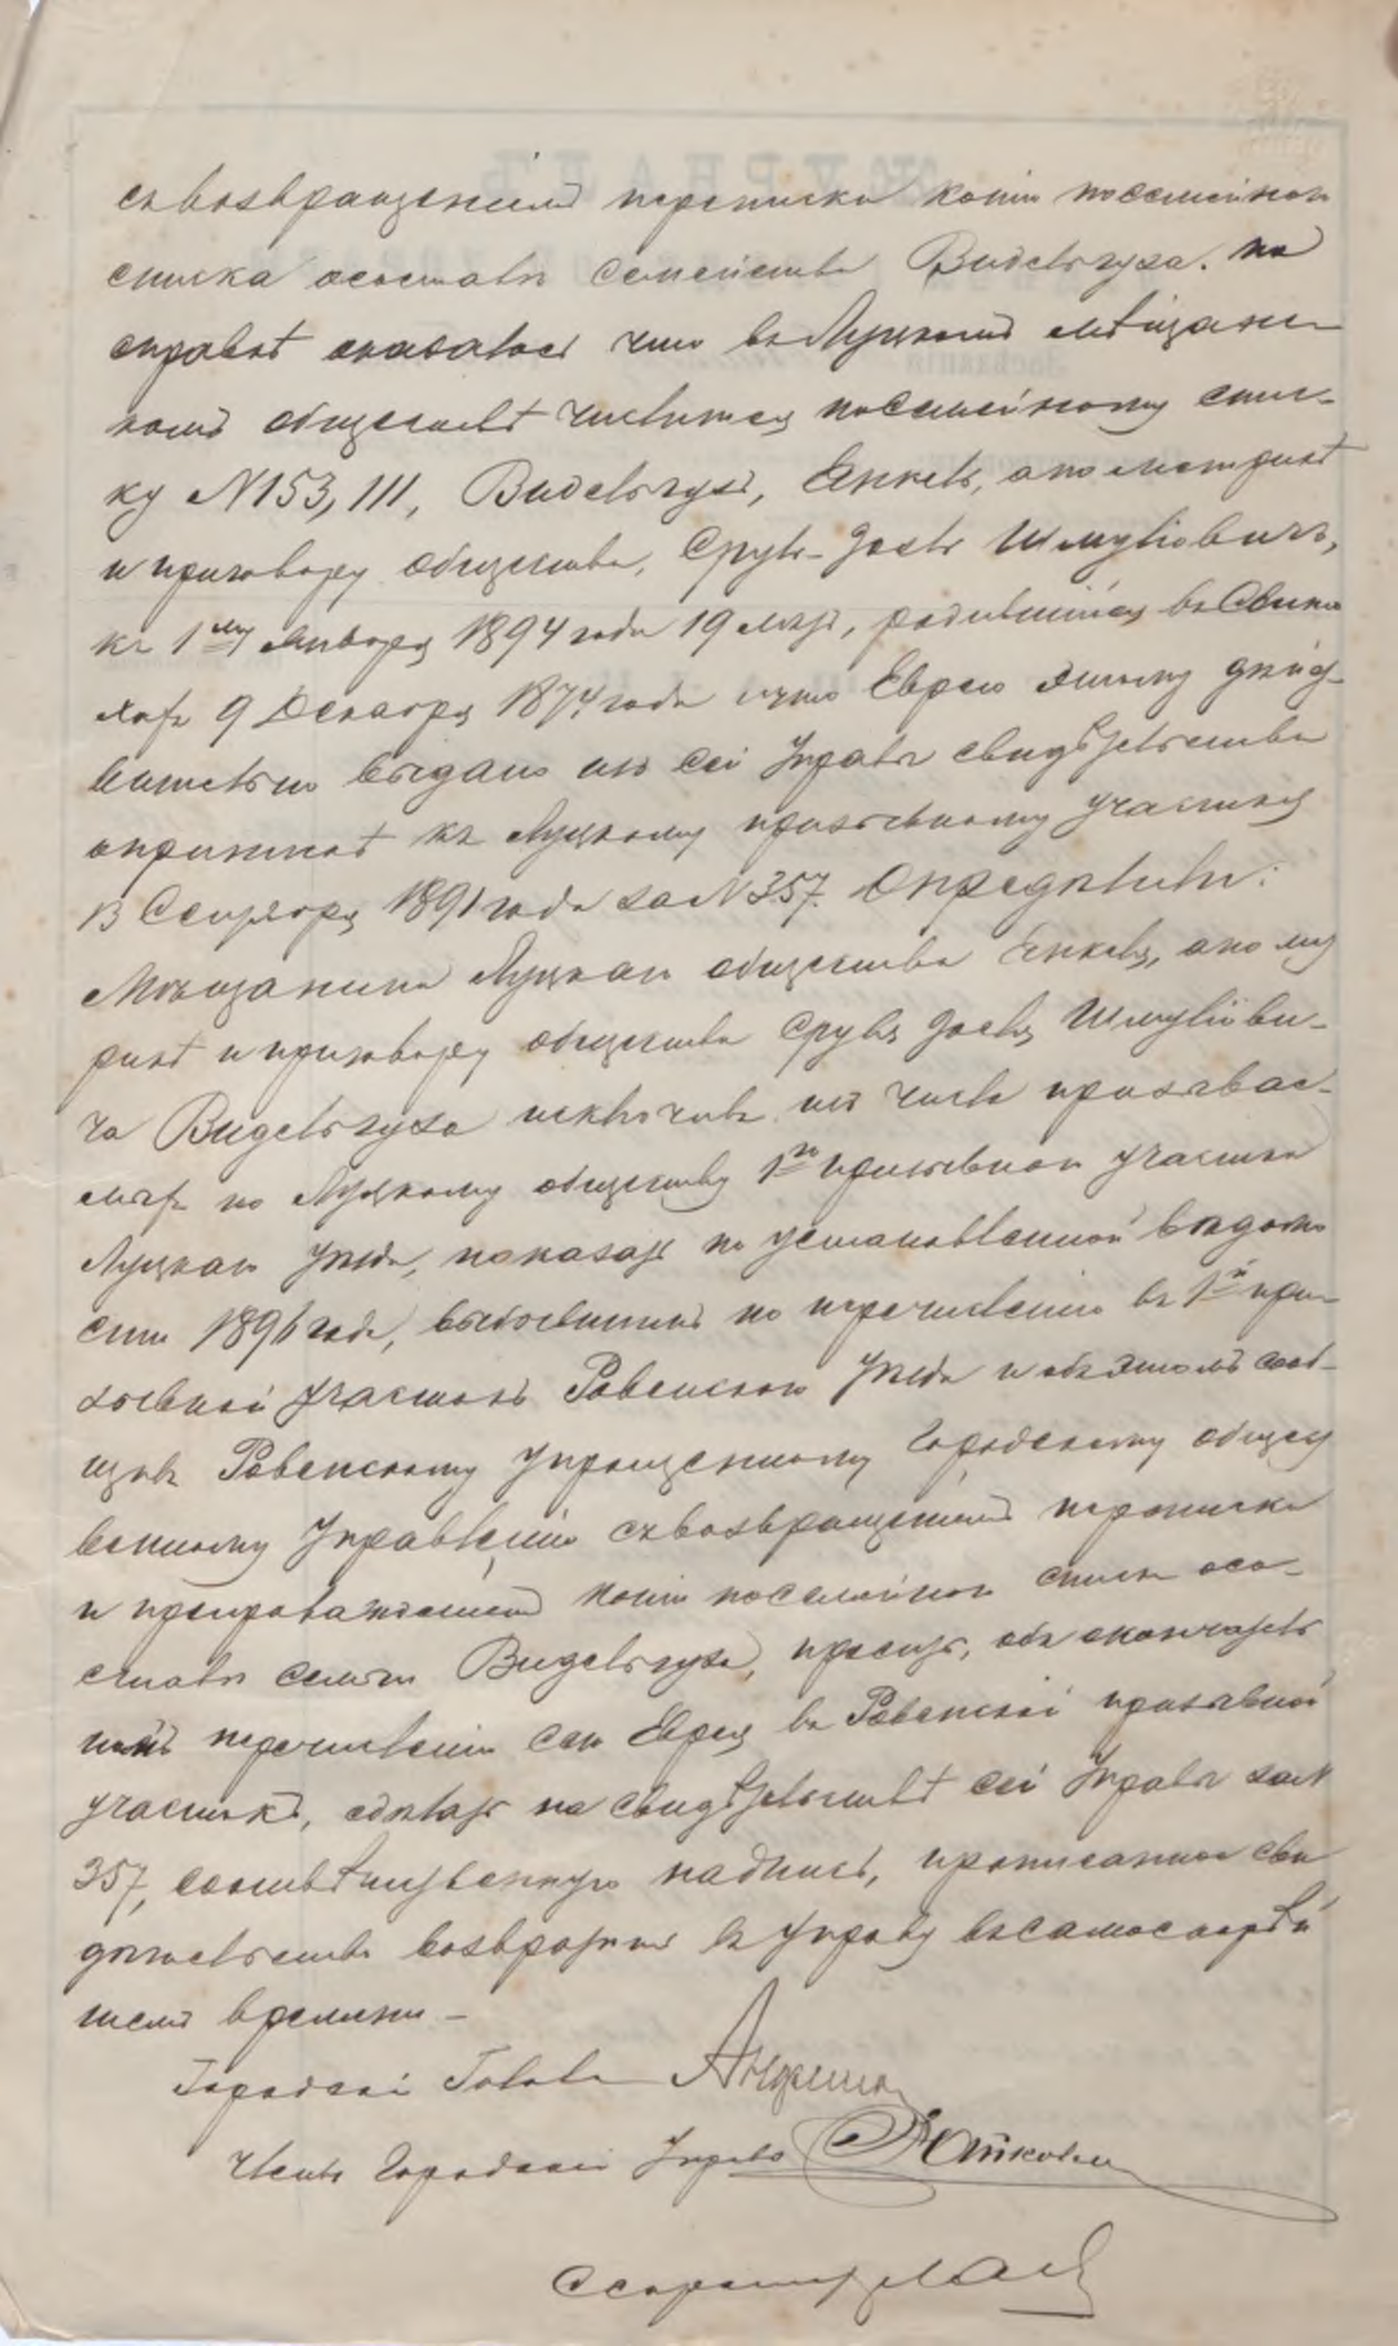 съ возвращеніемъ переписки копіи посемейнаго
списка о составѣ семейства Видельгуза. По
справкѣ оказалось что въ Луцкомъ мѣщанс-
комъ обществѣ числится по семейному спис-
ку № 153, 111, Видельгузъ, Енкель, а по метрикѣ
и приговору общества, Сруль-Іосъ Шмулiовичъ,
къ 1му Января 1894 года 19 лѣтъ, родившійся въ
9 Декабря 1874 года и что Еврею этому дѣйс-
вительно выдано изъ сей Управы свидѣтельство
о припискѣ къ Луцкому призывному участку
13 Сентября 1891 года за № 357. Опредѣлили:
Мѣщанина Луцкаго общества Енкеля, а по мет
рикѣ и приговору общества Сруля Іося Шмулiови-
ча Видельгуза исключивъ изъ числа призывае-
мыхъ по Луцкому обществу 1го призывнаго участка
Луцкаго Уѣзда, показать по установленной вѣдомо
сти 1896 года, выбывшимъ по перечисленію въ 1й при-
зывной участокъ Ровенскаго Уѣзда и объ этомъ сооб-
щить Ровенскому Упрощенному Городскому общест
венному Управленію съ возвращеніемъ переписки
и препровожденіемъ копіи посемейнаго списка о со-
ставѣ семьи Видельгуза, просить, объ окончатель
номъ перечисленіи сего Еврея въ Ровенскій призывной
участокъ, сдѣлать на свидѣтельствѣ сей Управы за №
357, соотвѣтственную надпись, прописанное сви
дѣтельство возвратить въ Управу въ самоскорѣй
шемъ времени –
Городской Голова
Членъ Городской Управы
Секретарь